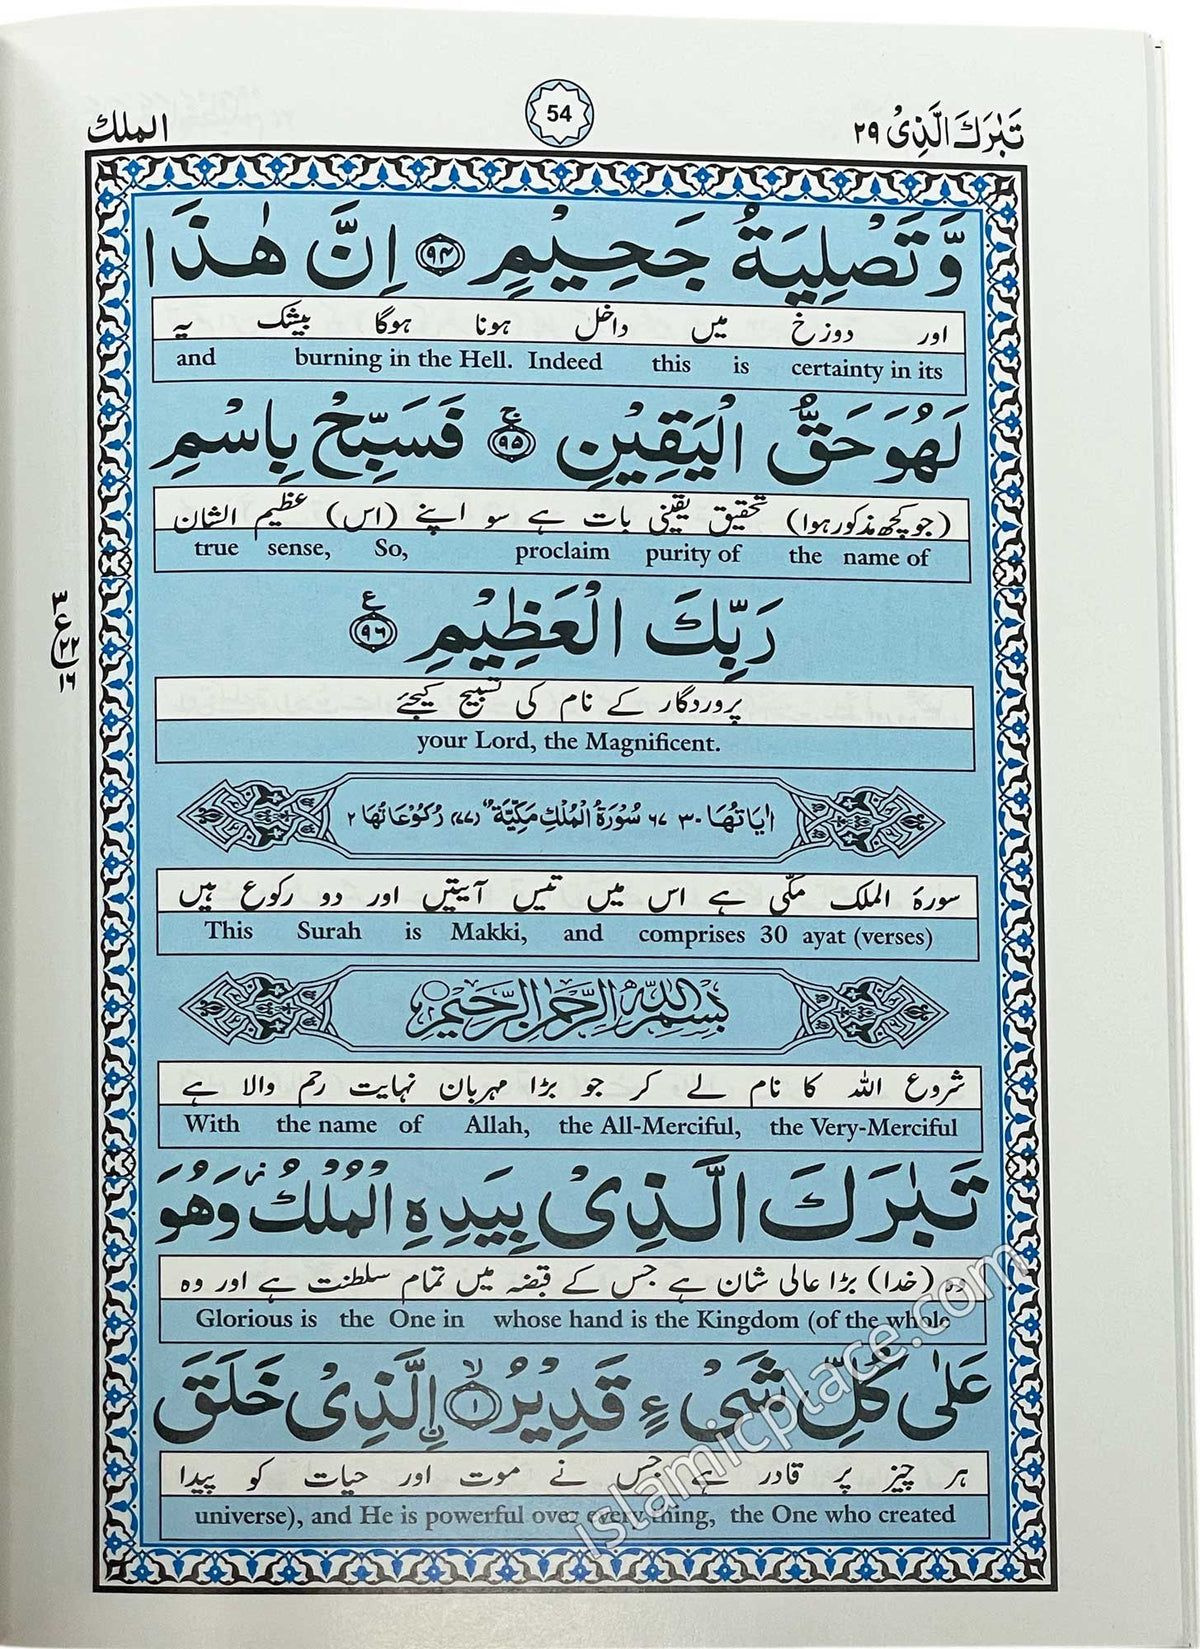 تَبٰرَكَ الَّذِىْ ٢٩
54
الملك
وَّتَصْلِيَةُ جَحِيْمٍ ٩٤ اِنَّ هٰذَا
اور دوزخ میں داخل ہونا ہوگا بیشک یہ
and burning in the Hell. Indeed this is certainty in its
لَهُوَ حَقُّ الْيَقِيْنِ ۚ ٩٥ فَسَبِّحْ بِاسْمِ
(جو کچھ مذکور ہوا) تحقیق یقینی بات ہے سو اپنے (اس) عظیم الشان
true sense, So, proclaim purity of the name of
رَبِّكَ الْعَظِيْمِ ع ٩٦
٣
ع
٢٢
١٦
پروردگار کے نام کی تسبیح کیجئے
your Lord, the Magnificent.
اٰيَاتُهَا ٣٠ ٦٧ سُوْرَةُ الْمُلْكِ مَكِّيَّةٌ (٧٧) رُكُوْعَاتُهَا ٢
سورۂ الملک مکّی ہے اس میں تیس آیتیں اور دو رکوع ہیں
This Surah is Makki, and comprises 30 ayat (verses)
بِسْمِ اللّٰهِ الرَّحْمٰنِ الرَّحِيْمِ
شروع اللہ کا نام لے کر جو بڑا مہربان نہایت رحم والا ہے
With the name of Allah, the All-Merciful, the Very-Merciful
تَبٰرَكَ الَّذِىْ بِيَدِهِ الْمُلْكُ ۫ وَهُوَ
وہ (خدا) بڑا عالی شان ہے جس کے قبضہ میں تمام سلطنت ہے اور وہ
Glorious is the One in whose hand is the Kingdom (of the whole
عَلٰى كُلِّ شَىْءٍ قَدِيْرُ ۙ ١ اِۨلَّذِىْ خَلَقَ
ہر چیز پر قادر ہے جس نے موت اور حیات کو پیدا
universe), and He is powerful over every thing, the One who created
islamicplace.com